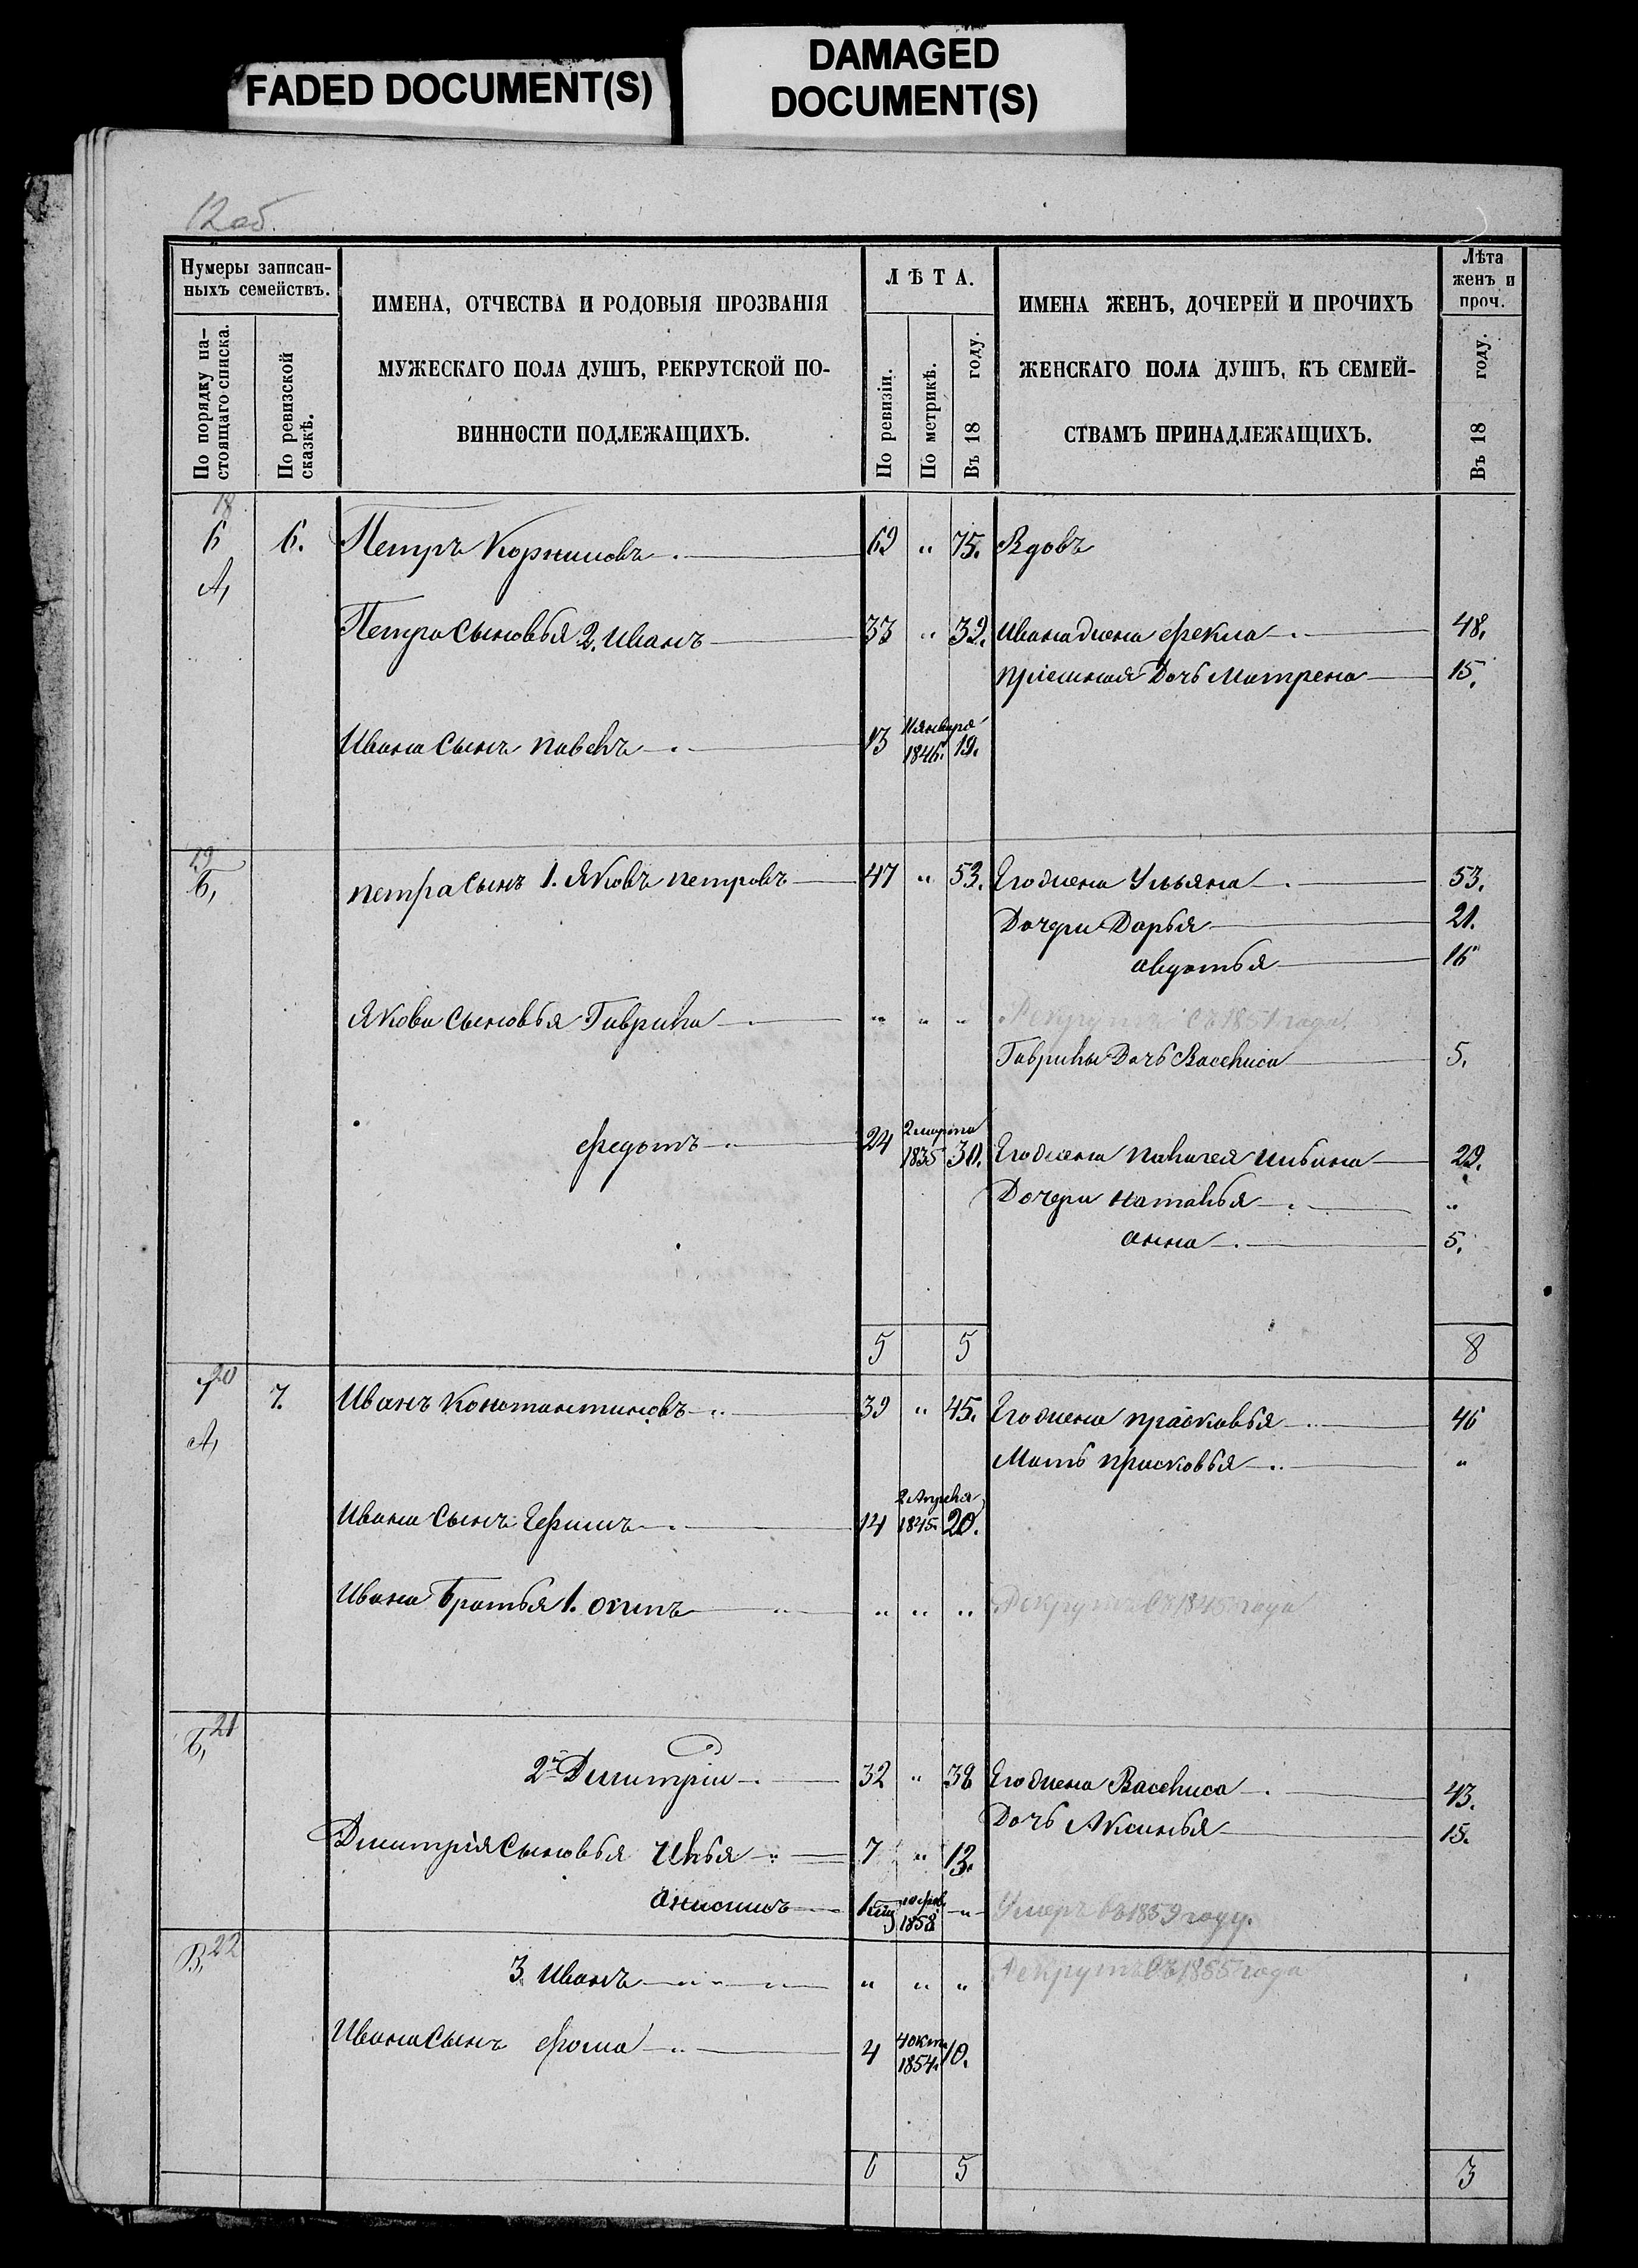 FADED DOCUMENT(S)
DAMAGED
DOCUMENT(S)
12 об.
Нумеры записан-
ныхъ семействъ.
По порядку на-
стоящаго списка.
По ревизской
сказкѣ.
ИМЕНА, ОТЧЕСТВА И РОДОВЫЯ ПРОЗВАНІЯ
МУЖЕСКАГО ПОЛА ДУШЪ, РЕКРУТСКОЙ ПО-
ВИННОСТИ ПОДЛЕЖАЩИХЪ.
ЛѢТА.
По ревизіи.
По метрикѣ.
Въ 18 году.
ИМЕНА ЖЕНЪ, ДОЧЕРЕЙ И ПРОЧИХЪ
ЖЕНСКАГО ПОЛА ДУШЪ, КЪ СЕМЕЙ-
СТВАМЪ ПРИНАДЛЕЖАЩИХЪ.
Лѣта
женъ и
проч.
Въ 18 году.
18
6 6. Петръ Корниловъ 69 " 75. Вдовъ
А,
Петра Сыновья 2. Иванъ 33 " 39. Ивана жена Фекла 48.
пріемная Дочь Матрена 15.
Ивана Сынъ Павелъ 13 11 января 1846. 19.
19
Б, петра Сынъ 1. Яковъ петровъ 47 " 53. Его жена Ульяна 53.
Дочери Дарья 21.
авдотья 16
Якова Сыновья Гаврила " " " Рекрутъ съ 1851 года.
Гаврилы Дочь Василиса 5.
Федотъ 24 2 марта 1835 30. Его жена Палагея ильина 29.
Дочери наталья "
анна 5.
5 5 8
20
7 7. Иванъ Константиновъ 39 " 45. Его жена прасковья 46
А,
Мать прасковья "
Ивана Сынъ Ефимъ 14 2 Апреля 1845. 20.
Ивана братья 1. осипъ " " " Рекрутъ съ 1845 года
21
Б, 2й Дмитрій 32 " 38 Его жена Василиса 43.
Дочь Аксинья 15.
Дмитрія Сыновья Илья 7 " 13.
Анисимъ 1 10 фев 1858 " Умеръ въ 1859 году.
22
В, 3. Иванъ " " " Рекрутъ съ 1855 года
Ивана Сынъ Фома 4 4 окт. 1854. 10.
6 5 3